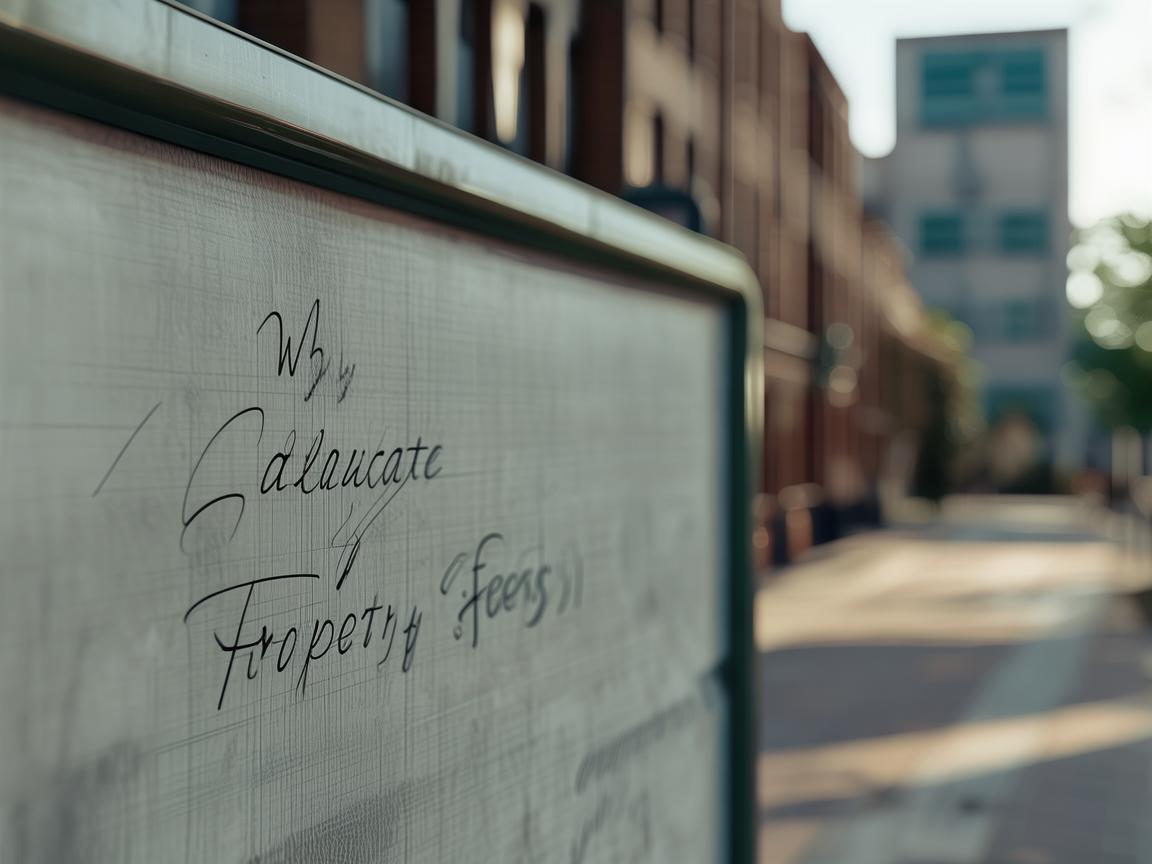 Why
Calaucate
Property "fees"